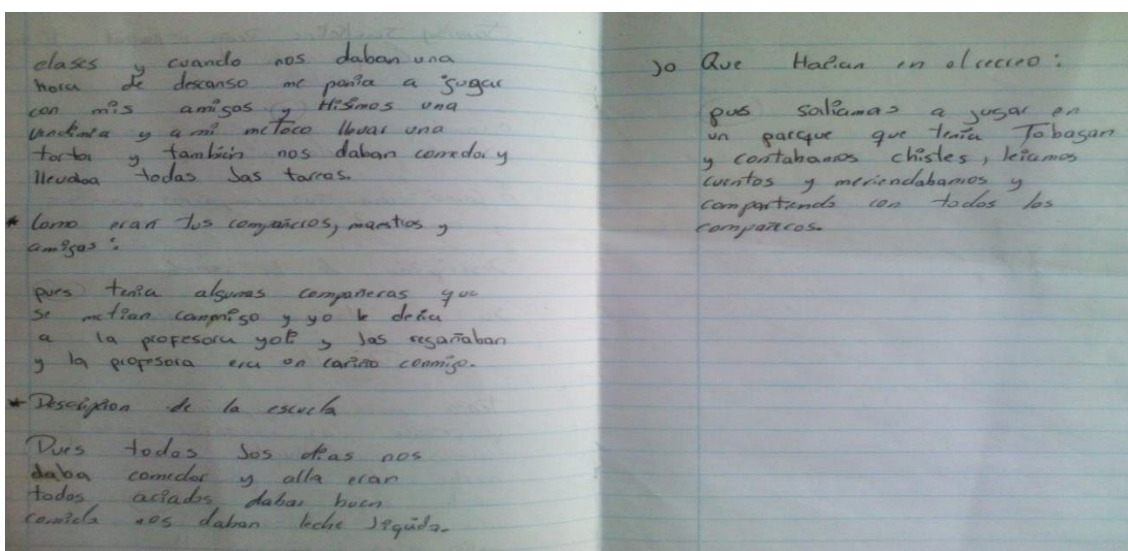 clases y cuando nos daban una
hora de descanso me ponia a jugar
con mis amigos y Hisimos una
y a mi me toco llevar una
torta y tambien nos daban comedor y
llevaba todas las tareas.
* Como eran tus compañeros, maestros y
amigos:
pues tenia algunas compañeras que
se metian conmigo y yo le decia
a la profesora yoli y las regañaban
y la profesora era un cariño conmigo.
* Descripion de la escuela
Pues todos los dias nos
daba comedor y alla eran
todos aciados daban buen
comida nos daban leche liquida.
Que Hacian en el recreo:
pues saliamos a jugar en
un parque que tenia Tobagan
y contabamos chistes, leiamos
cuentos y meriendabamos y
compartiendo con todos los
compañeros.